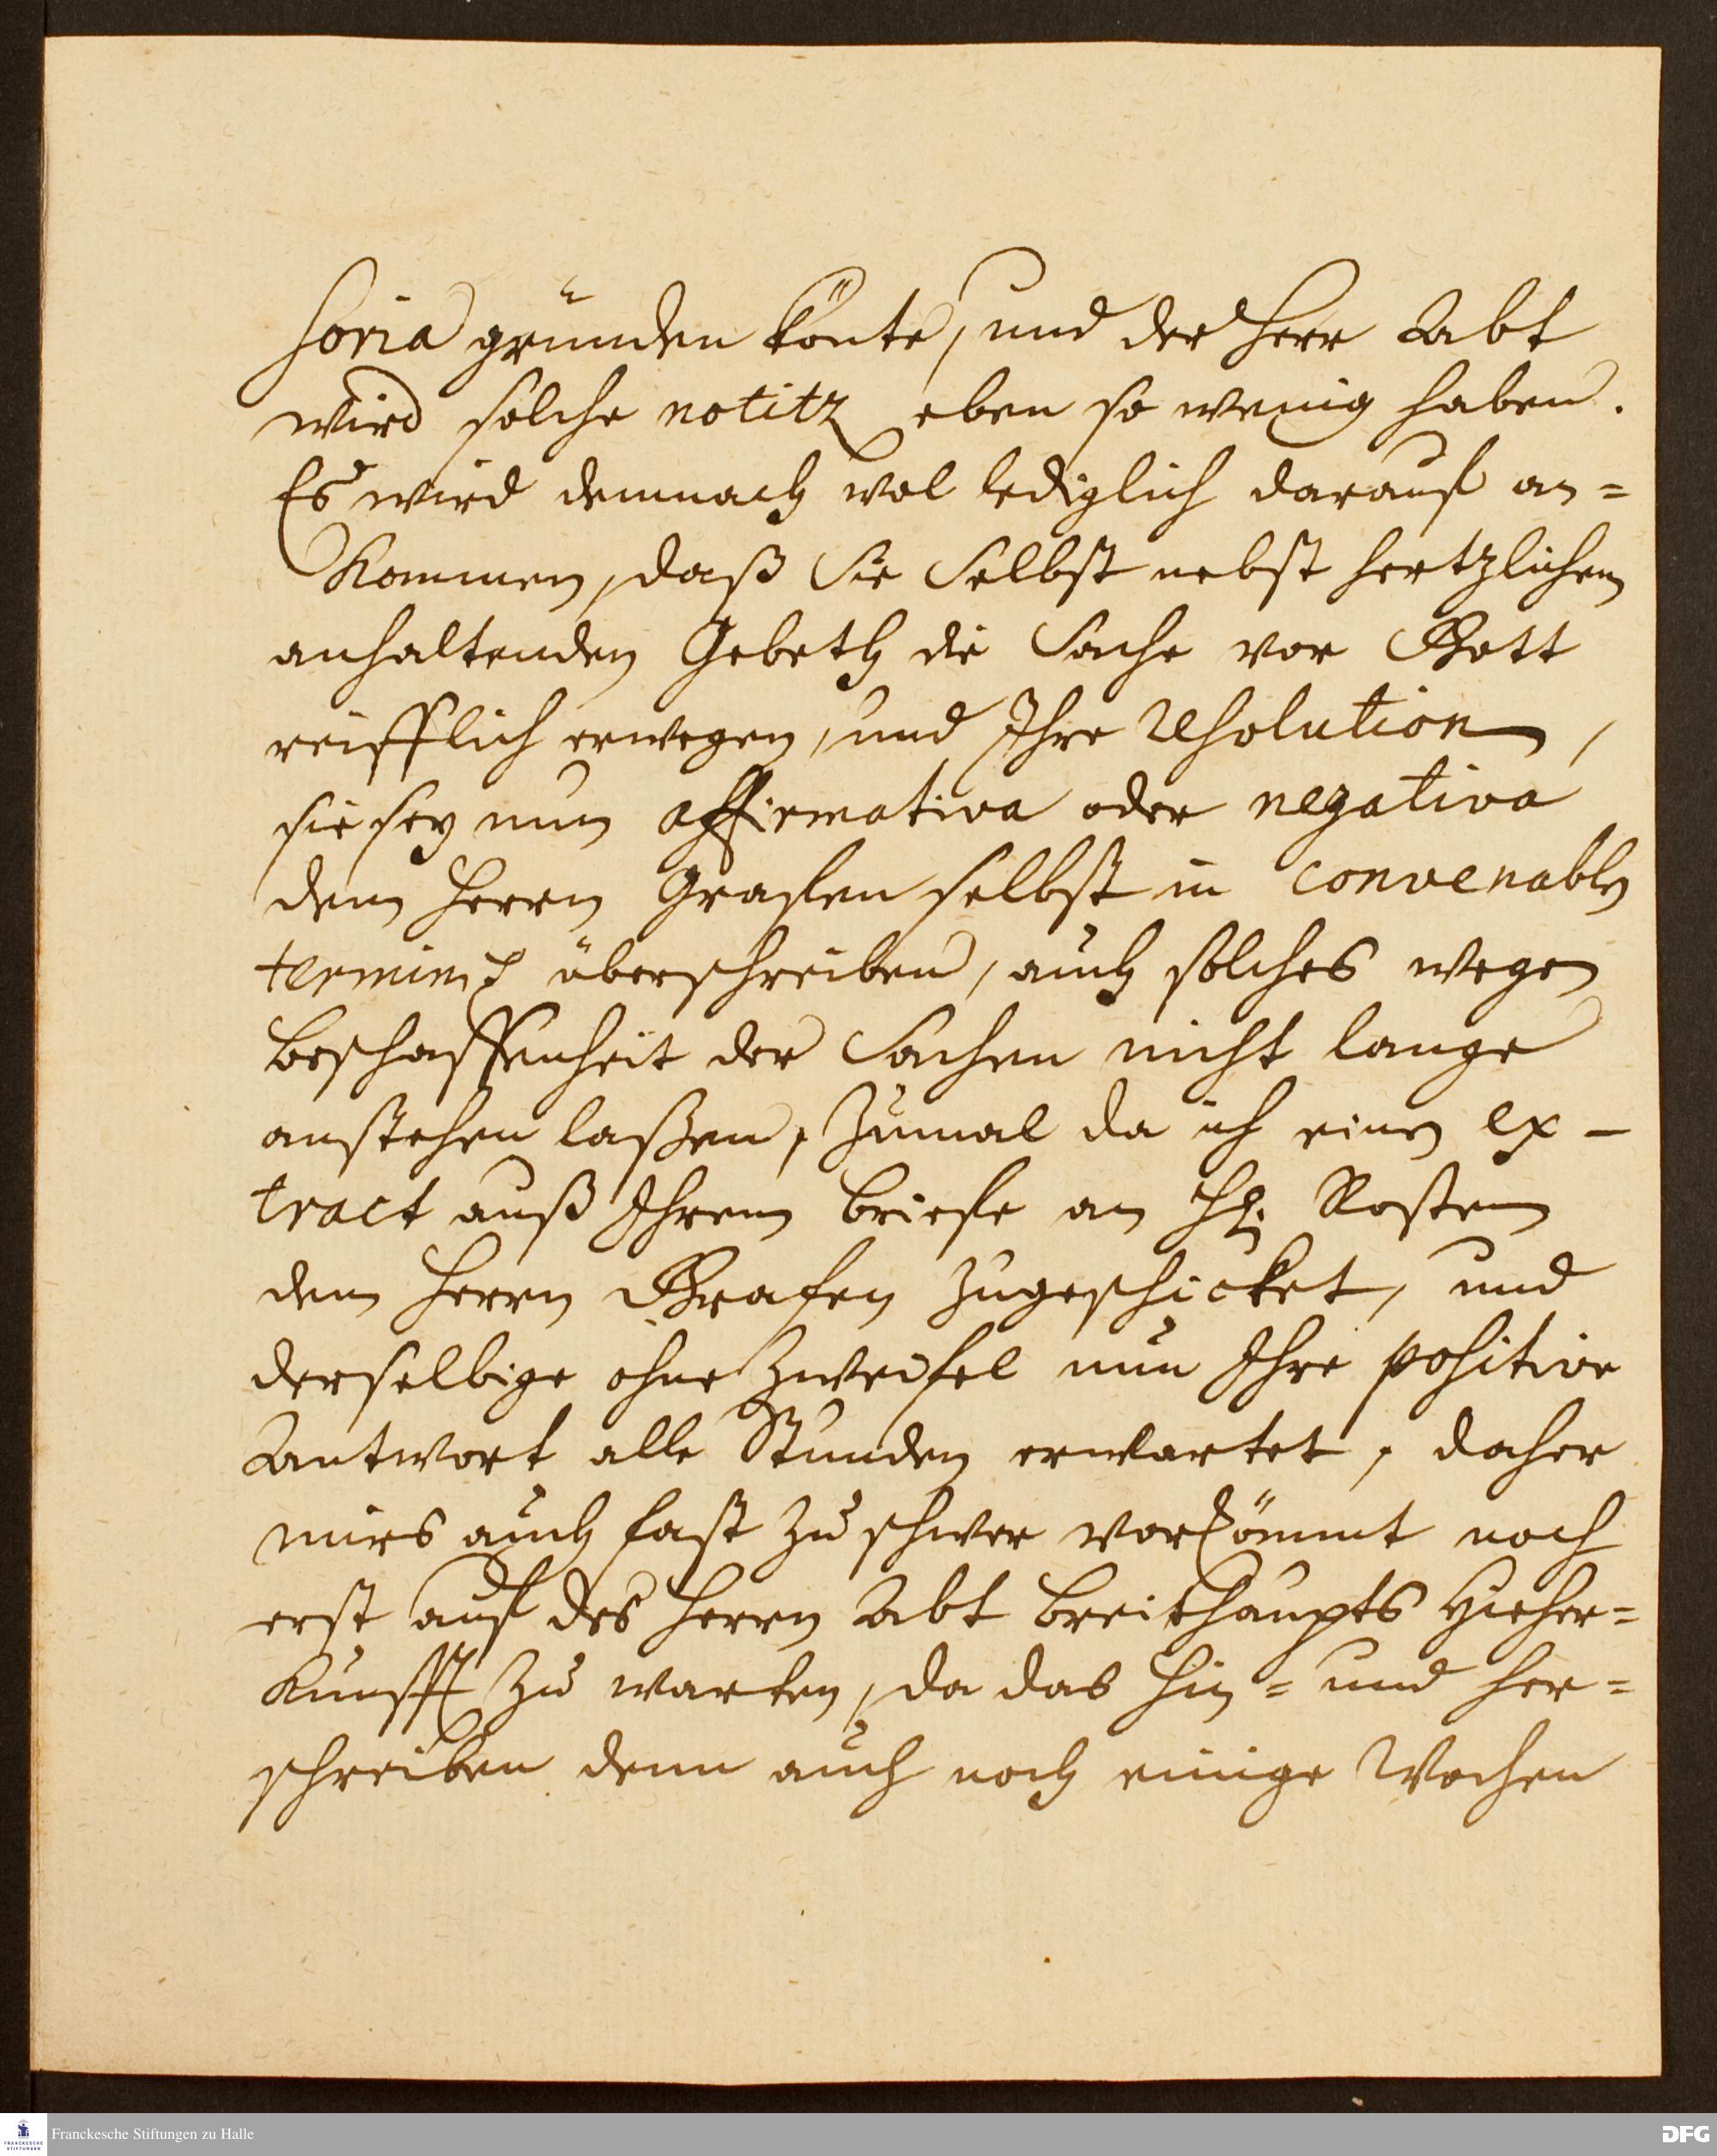 soria gründen könte, und der Herr Abt
wird solche notitz eben so wenig haben.
Es wird demnach wol lediglich darauf an=
kommen, daß Sie Selbst nebst hertzlichem
anhaltenden Gebeth die Sache vor Gott
reifflich erwegen, und Ihre resolution,
sie sey nun affirmativa oder negativa
dem Herrn Grafen selbst in convenablen
terminis überschreiben, auch solches wegen
beschaffenheit der Sachen nicht lange
anstehen laßen, zumal da ich einen ex-
tract auß Ihrem briefe an H. Rosten
dem Herrn Grafen zugeschicket, und
derselbige ohne Zweifel nun Ihre positive
Antwort alle Stunden erwartet, daher
mirs auch fast zu schwer vorkömmt noch
erst auf des Herrn Abt Breithaupts Hieher=
kunfft zu warten, da das hin= und her=
schreiben denn auch noch einige Wochen
Franckesche Stiftungen zu Halle
FRANCKESCHE
STIFTUNGEN
DFG